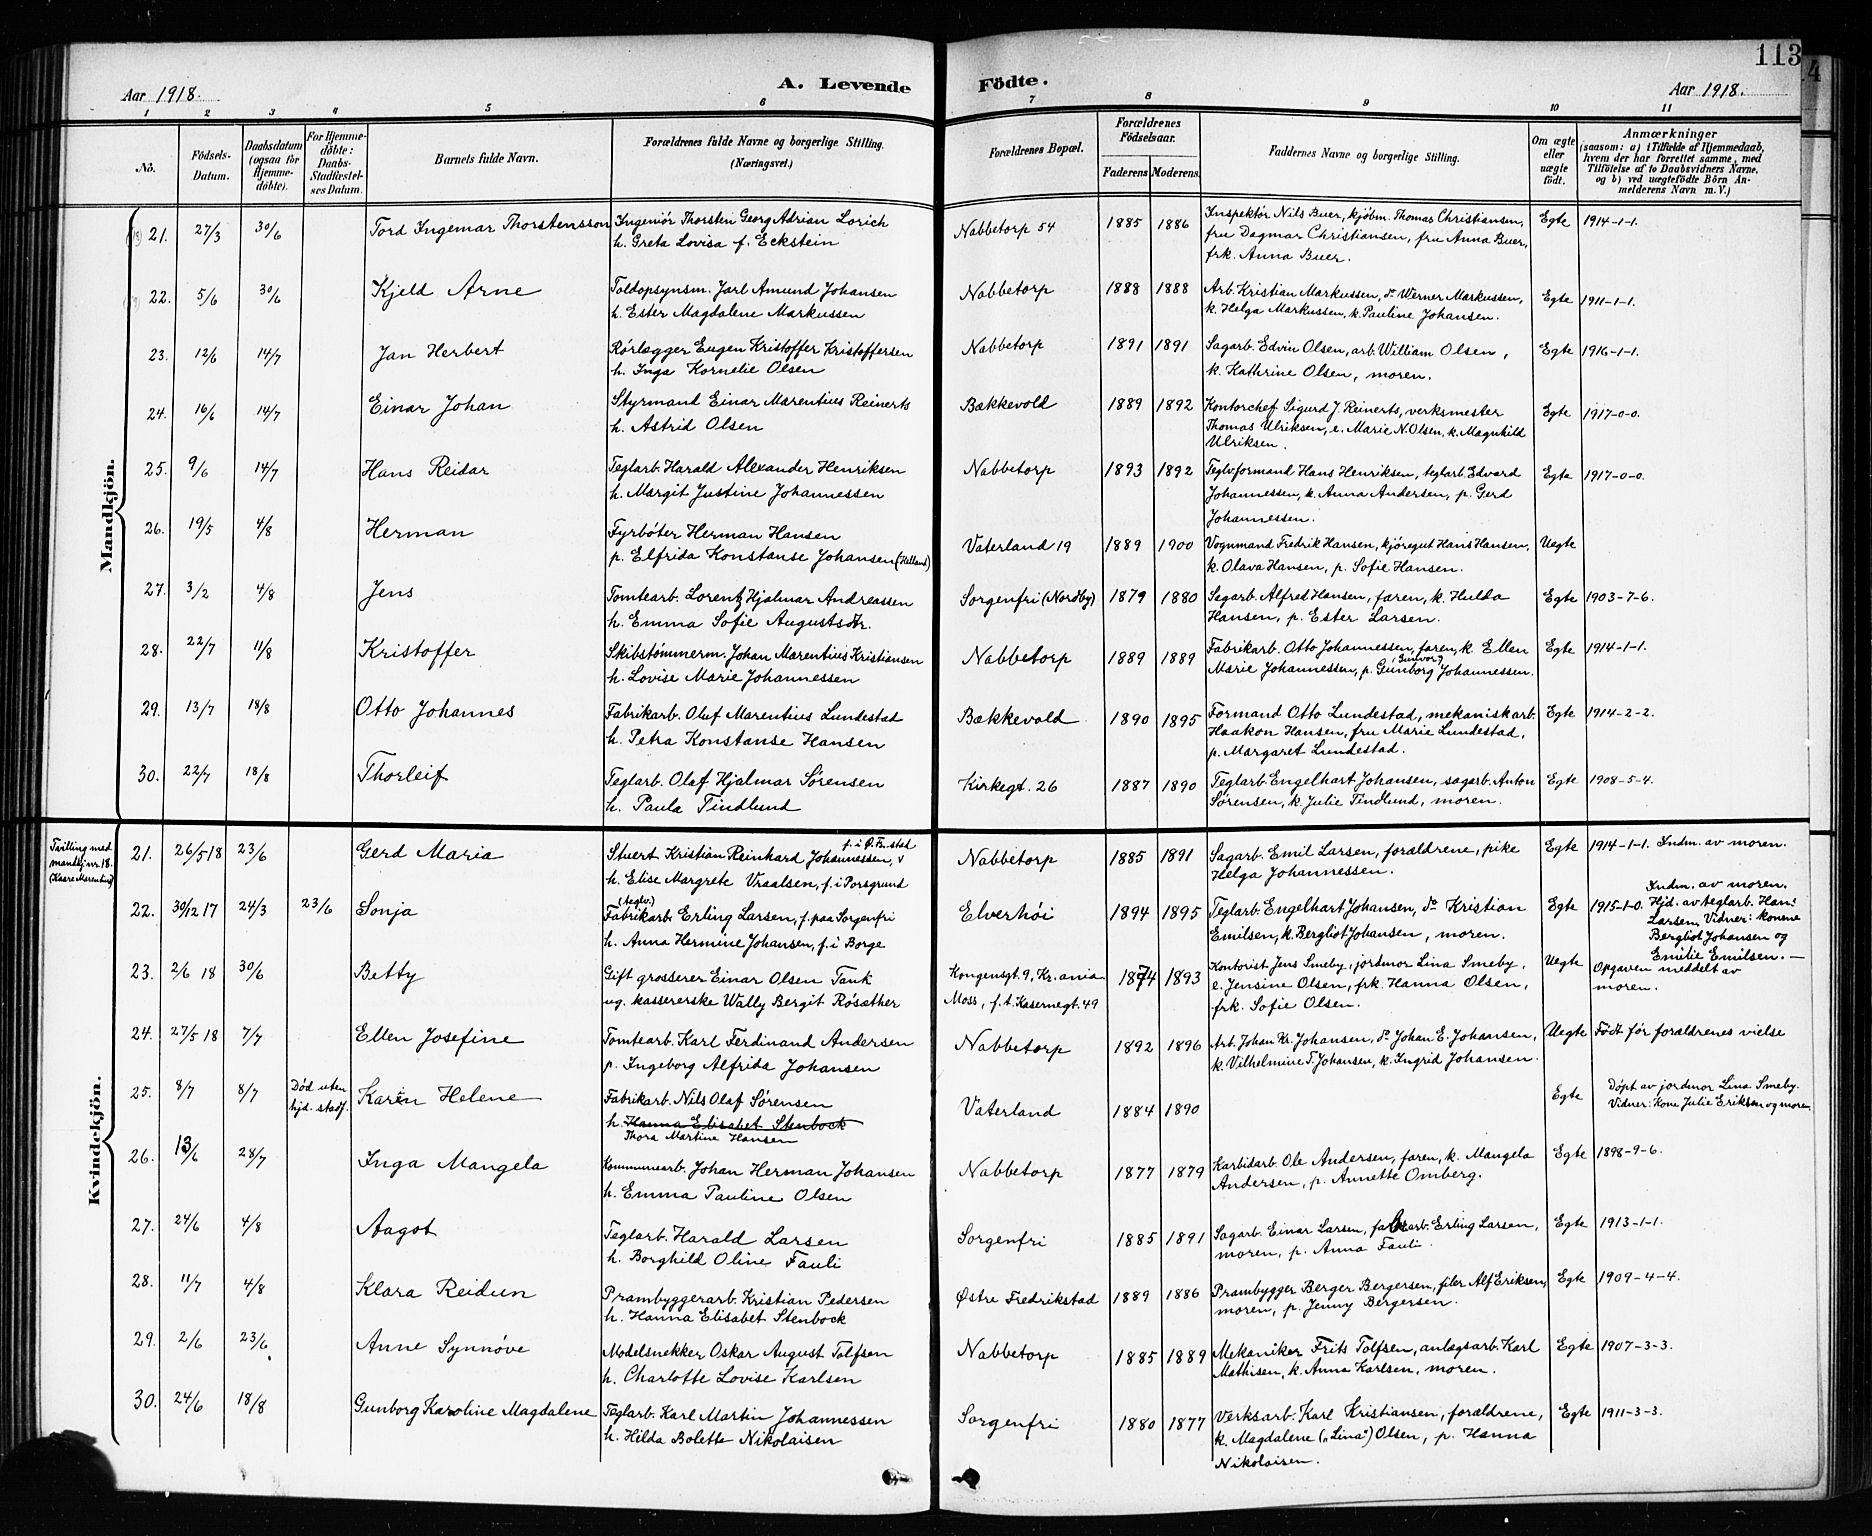 113
Aar 1918.
A. Levende
Födte.
Aar 1918.
1 2 3 4 5 6 7 8 9 10 11
No.
Födsels-Datum.
Daabsdatum (ogsaa for Hjemme-döbte).
For Hjemme-döbte: Daabs-Stadfæstel-ses Datum.
Barnets fulde Navn.
Forældrenes fulde Navne og borgerlige Stilling. (Næringsvei.)
Forældrenes Bopæl.
Forældrenes Födselsaar.
Faderens Moderens
Faddernes Navne og borgerlige Stilling.
Om ægte eller uægte födt.
Anmærkninger
(saasom: a) i Tilfælde af Hjemmedaab, hvem der har forrettet samme, med Tilföielse af to Daabsvidners Navne, og b) ved uægtefödte Börn An-melderens Navn m. V.)
Mandkjön.
21. 27/3 30/6 Tord Ingemar Thorstensson Ingeniør Thorsten Georg Adrian Lorich Nabbetorp 54 1885 1886 Inspektør Nils Buer, kjøbm. Thomas Christiansen, Egte 1914-1-1.
h. Greta Lovisa f. Eckstein fru Dagmar Christiansen, fru Anna Buer,
frk. Anna Buer.
22. 5/6 30/6 Kjeld Arne Toldopsynsm. Jarl Amund Johansen Nabbetorp 1888 1888 Arb. Kristian Markussen, do Werner Markussen, Egte 1911-1-1.
h. Ester Magdalene Markussen k. Helga Markussen, k. Pauline Johansen.
23. 12/6 14/7 Jan Herbert Rørlægger Eugen Kristoffer Kristoffersen Nabbetorp 1891 1891 Sagarb. Edvin Olsen, arb. William Olsen, Egte 1916-1-1.
h. Inga Kornelie Olsen k. Kathrine Olsen, moren.
24. 16/6 14/7 Einar Johan Styrmand Einar Marentius Reinerts Bækkevold 1889 1892 Kontorchef Sigurd J. Reinerts, verksmester Egte 1917-0-0.
h. Astrid Olsen Thomas Ulriksen, e. Marie N. Olsen, k. Magnhild
Ulriksen.
25. 9/6 14/7 Hans Reidar Teglarb. Harald Alexander Henriksen Nabbetorp 1893 1892 Teglvformand Hans Henriksen, teglarb. Edvard Egte 1917-0-0.
h. Margit Justine Johannessen Johannessen, k. Anna Andersen, p. Gerd
Johannessen.
26. 19/5 4/8 Herman Fyrbøter Herman Hansen Vaterland 19 1889 1900 Vognmand Fredrik Hansen, kjøregut Hans Hansen, Uegte
p. Elfrida Konstanse Johansen (Helland) k. Olava Hansen, p. Sofie Hansen.
27. 3/2 4/8 Jens Tomtearb. Lorentz Hjalmar Andreassen Sorgenfri (Nordby) 1879 1880 Sagarb. Alfred Hansen, faren, k. Hulda Egte 1903-7-6.
h. Emma Sofie Augustsdtr. Hansen, p. Ester Larsen.
28. 22/7 11/8 Kristoffer Skibstømmerm. Johan Marentius Kristiansen Nabbetorp 1889 1889 Fabrikarb. Otto Johannessen, faren, k. Ellen Egte 1914-1-1.
h. Lovise Marie Johannessen Marie Johannessen, p. Gunborg (Gunvor) Johannessen.
29. 13/7 18/8 Otto Johannes Fabrikarb. Oluf Marentius Lundestad Bækkevold 1890 1895 Formand Otto Lundestad, mekaniskarb. Egte 1914-2-2.
h. Petra Konstanse Hansen Haakon Hansen, fru Marie Lundestad,
p. Margaret Lundestad.
30. 22/7 18/8 Thorleif Teglarb. Olaf Hjalmar Sørensen Kirkegt. 26 1887 1890 Teglarb. Engelhart Johansen, sagarb. Anton Egte 1908-5-4.
h. Paula Tindlund Sørensen, k. Julie Tindlund, moren.
Kvindekjön.
Tvilling med mandkj. nr. 18. (Kaare Marentius)
21. 26/5 18 23/6 Gerd Maria Stuert Kristian Reinhard Johannessen, f. i Ø. Fr.stad Nabbetorp 1885 1891 Sagarb. Emil Larsen, forældrene, pike Egte 1914-1-1. Indm. av moren.
h. Elise Margrete Vraalsen, f. i Porsgrund Helga Johannessen.
22. 30/12 17 24/3 23/6 Sonja Fabrikarb. (teglv.) Erling Larsen, f. paa Sorgenfri Elverhøi 1894 1895 Teglarb. Engelhart Johansen, do Kristian Egte 1915-1-0. Indm. av moren. Hjd. av teglarb. Hans Larsen, Vidner: konene Bergliot Johansen og Emilie Emilsen. —
h. Anna Hermine Johansen, f. i Borge Emilsen, k. Bergliot Johansen, moren.
23. 2/6 18 30/6 Betty Gift grosserer Einar Olsen Tank Kongensgt. 9, Kr.ania 1874 1893 Kontorist Jens Smeby, jordmor Lina Smeby, Uegte Opgaven meddelt av moren.
ug. kassererske Wally Bergit Røsæther Moss, f. t. Kasernegt. 49 e. Jensine Olsen, frk. Hanna Olsen,
frk. Sofie Olsen.
24. 27/5 18 7/7 Ellen Josefine Tomtearb. Karl Ferdinand Andersen Nabbetorp 1892 1896 Arb. Johan Kr. Johansen, do Johan E. Johansen, Uegte Født før forældrenes vielse
p. Ingeborg Alfrida Johansen k. Vilhelmine T. Johansen, k. Ingrid Johansen.
25. 8/7 8/7 Død uten hjd. stadf. Karin Helene Fabrikarb. Nils Olaf Sørensen Vaterland 1884 1890 Egte Døpt av jordmor Lina Smeby. Vidner: Kone Julie Eriksen og moren
h. Hanna Elisabet Stenbock
Thora Martine Hansen
26. 13/6 28/7 Inga Mangela Kommunearb. Johan Herman Johansen Nabbetorp 1877 1879 Karbidarb. Ole Andersen, faren, k. Mangela Egte 1898-9-6.
h. Emma Pauline Olsen Andersen, p. Annette Omberg.
27. 24/6 4/8 Aagot Teglarb. Harald Larsen Sorgenfri 1885 1891 Sagarb. Einar Larsen, fabrarb. Erling Larsen, Egte 1913-1-1.
h. Borghild Oline Fauli moren, p. Anna Fauli.
28. 11/7 4/8 Klara Reidun Prambyggerarb. Kristian Pedersen Østre Fredrikstad 1889 1886 Prambygger Berger Bergersen, filer Alf Eriksen, Egte 1909-4-4.
h. Hanna Elisabet Stenbock moren, p. Jenny Bergersen.
29. 2/6 23/6 Anne Synnøve Modelsnekker Oskar August Tolfsen Nabbetorp 1885 1889 Mekaniker Frits Tolfsen, anlægsarb. Karl Egte 1907-3-3.
h. Charlotte Lovise Karlsen Mathisen, k. Anna Karlsen, moren.
30. 24/6 18/8 Gunborg Karoline Magdalene Teglarb. Karl Martin Johannessen Sorgenfri 1880 1877 Verksarb. Karl Kristiansen, forældrene, Egte 1911-3-3.
h. Hilda Bolette Nikolaisen k. Magdalene („Lina") Olsen, p. Hanna
Nikolaisen.